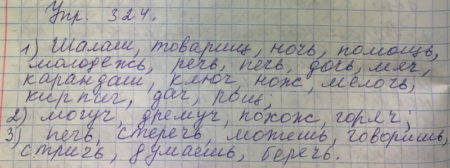 Упр. 324.
1) Шалаш, товарищ, ночь, помощь,
молодежь, речь, печь, дочь, мяч,
карандаш, ключ, нож, мелочь,
кирпич, дач, рощ,
2) могуч, дремуч, похож, горяч;
3) печь, стеречь, можешь, говоришь,
стричь, думаешь, беречь.